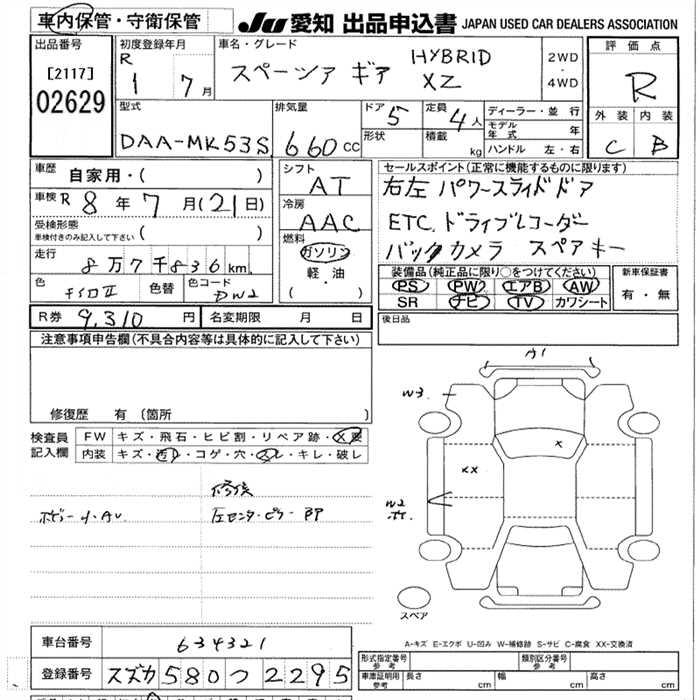 車内保管・守衛保管
JU 愛知 出品申込書 JAPAN USED CAR DEALERS ASSOCIATION
出品番号
[2117]
02629
初度登録年月
R 1 7月
車名・グレード
スペーシア ギア HYBRID XZ
2WD・4WD
評価点
R
外装 内装
C B
型式
DAA-MK53S
排気量
660cc
ドア 5
形状
定員 4人
積載 kg
ディーラー・並行
モデル年式 年
ハンドル 左・右
車歴
自家用・( )
車検 R 8年 7月(21日)
受検形態
車検付きのみ記入して下さい ( )
走行
8万7千836km
色 色替 色コード
DW2
シフト
AT
冷房
AAC
燃料
ガソリン
軽・油
( ・ )
セールスポイント(正常に機能するものに限ります)
右左 パワースライドドア
ETC. ドライブレコーダー
バックカメラ スペアキー
装備品(純正品に限り○をつけてください)
PS PW エアB AW
SR ナビ TV カワシート
新車保証書
有・無
R券 9,310円 名変期限 月 日
後日品
注意事項申告欄(不具合内容等は具体的に記入して下さい)
修復歴 有(箇所 )
検査員記入欄
FW キズ・飛石・ヒビ割・リペア跡・X要
内装 キズ・汚れ・コゲ・穴・スレ・キレ・破レ
修復
ボデー小AU
左センターピラー 即
A1
W3
X
XX
W2
スペア
A-キズ E-エクボ U-凹み W-補修跡 S-サビ C-腐食 XX-交換済
車台番号 634321
登録番号 スズカ 580 つ 2295
形式指定番号 参考
類別区分番号 参考
車庫証明用 参考 長さ cm 幅 cm 高さ cm